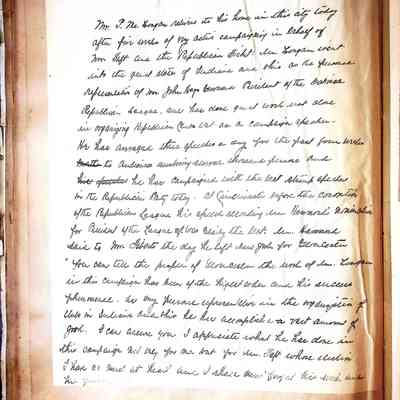 Wm P. McLongan returns to his home in this city today
after five weeks of very active campaigning in behalf of
Wm Taft and the Republican ticket. Mr. Longan went
into the great state of Indiana and Ohio as the personal
representative of Mr. John Hays Hammond President of the National
Republican League, and has done great work not alone
in organizing Republican Clubs but as a campaign speaker.
He has averaged three speeches a day for the past four weeks
to audiences numbering several thousand persons and
he has campaigned with the best stump speakers
in the Republican Party today. At Cincinnati before the convention
of the Republican League his speech seconding Mr. Hammond's nomination
for President of the League was easily the best. Mr. Hammond
said to Mr. the day he left New York for Gloucester
"You can tell the people of Gloucester the work of Mr. Longan
in this campaign has been of the highest order and his success
phenomenal. As my personal representative in the organization of
clubs in Indiana and Ohio he has accomplished a vast amount of
good. I can assure you I appreciate what he has done in
this campaign not only for me but for Mr. Taft whose election
I have so much at heart and I shall never forget his work and